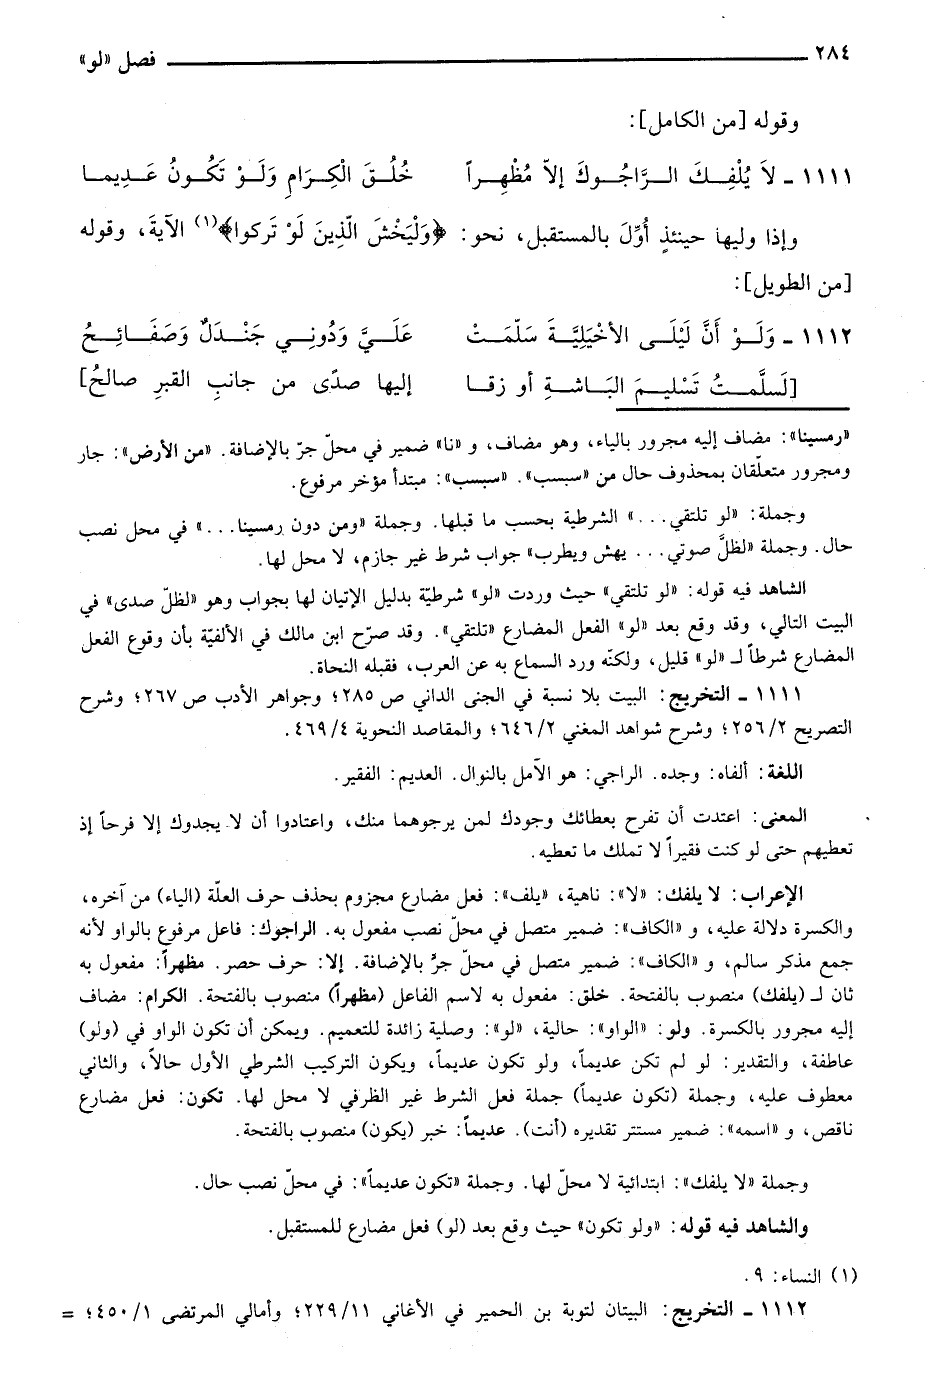 ٢٨٤ فصل «لو»
وقوله [من الكامل]:
١١١١ - لاَ يُلْفِـكَ الـرَّاجُـوكَ إلاّ مُظْهِـراً خُلُـقَ الْكِـرَامِ وَلَـوْ تَكُـونُ عَـدِيمـا
وإذا وليها حينئذٍ أُوِّلَ بالمستقبل، نحو: ﴿وَلْيَخْشَ الَّذِينَ لَوْ تَركوا﴾(١) الآيةَ، وقوله
[من الطويل]:
١١١٢ - وَلَـوْ أَنَّ لَيْلَـى الأَخْيَلِيَّـةَ سَلَّمَـتْ عَلَـيَّ وَدُونِـي جَنْـدَلٌ وَصَفَـائِـحُ
[لَسلَّمـتُ تَسْليـمَ البَـاشـةِ أو زقـا إليها صدًى من جانبِ القبرِ صالحُ]
«رمسينا»: مضاف إليه مجرور بالياء، وهو مضاف، و «نا» ضمير في محلّ جرّ بالإضافة. «من الأرض»: جار
ومجرور متعلّقان بمحذوف حال من «سبسب». «سبسب»: مبتدأ مؤخر مرفوع.
وجملة: «لو تلتقي...» الشرطية بحسب ما قبلها. وجملة «ومن دون رمسينا...» في محل نصب
حال. وجملة «لظلَّ صوتي... يهش ويطرب» جواب شرط غير جازم، لا محل لها.
الشاهد فيه قوله: «لو تلتقي» حيث وردت «لو» شرطيّة بدليل الإتيان لها بجواب وهو «لظلّ صدى» في
البيت التالي، وقد وقع بعد «لو» الفعل المضارع «تلتقي». وقد صرّح ابن مالك في الألفيّة بأن وقوع الفعل
المضارع شرطاً لـ «لو» قليل، ولكنّه ورد السماع به عن العرب، فقبله النحاة.
١١١١ - التخريج: البيت بلا نسبة في الجنى الداني ص ٢٨٥؛ وجواهر الأدب ص ٢٦٧؛ وشرح
التصريح ٢/ ٢٥٦؛ وشرح شواهد المغني ٢/ ٦٤٦؛ والمقاصد النحوية ٤/ ٤٦٩.
اللغة: ألفاه: وجده. الراجي: هو الآمل بالنوال. العديم: الفقير.
المعنى: اعتدت أن تفرح بعطائك وجودك لمن يرجوهما منك، واعتادوا أن لا يجدوك إلا فرحاً إذ
تعطيهم حتى لو كنت فقيراً لا تملك ما تعطيه.
الإعراب: لا يلفك: «لا»: ناهية، «يلف»: فعل مضارع مجزوم بحذف حرف العلّة (الياء) من آخره،
والكسرة دلالة عليه، و «الكاف»: ضمير متصل في محلّ نصب مفعول به. الراجوك: فاعل مرفوع بالواو لأنه
جمع مذكر سالم، و «الكاف»: ضمير متصل في محلّ جرّ بالإضافة. إلا: حرف حصر. مظهراً: مفعول به
ثان لـ (يلفك) منصوب بالفتحة. خلق: مفعول به لاسم الفاعل (مظهراً) منصوب بالفتحة. الكرام: مضاف
إليه مجرور بالكسرة. ولو: «الواو»: حالية، «لو»: وصلية زائدة للتعميم. ويمكن أن تكون الواو في (ولو)
عاطفة، والتقدير: لو لم تكن عديماً، ولو تكون عديماً، ويكون التركيب الشرطي الأول حالاً، والثاني
معطوف عليه، وجملة (تكون عديماً) جملة فعل الشرط غير الظرفي لا محل لها. تكون: فعل مضارع
ناقص، و «اسمه»: ضمير مستتر تقديره (أنت). عديماً: خبر (يكون) منصوب بالفتحة.
وجملة «لا يلفك»: ابتدائية لا محلّ لها. وجملة «تكون عديماً»: في محلّ نصب حال.
والشاهد فيه قوله: «ولو تكون» حيث وقع بعد (لو) فعل مضارع للمستقبل.
(١) النساء: ٩.
١١١٢ - التخريج: البيتان لتوبة بن الحمير في الأغاني ١١/ ٢٢٩؛ وأمالي المرتضى ١/ ٤٥٠؛ =